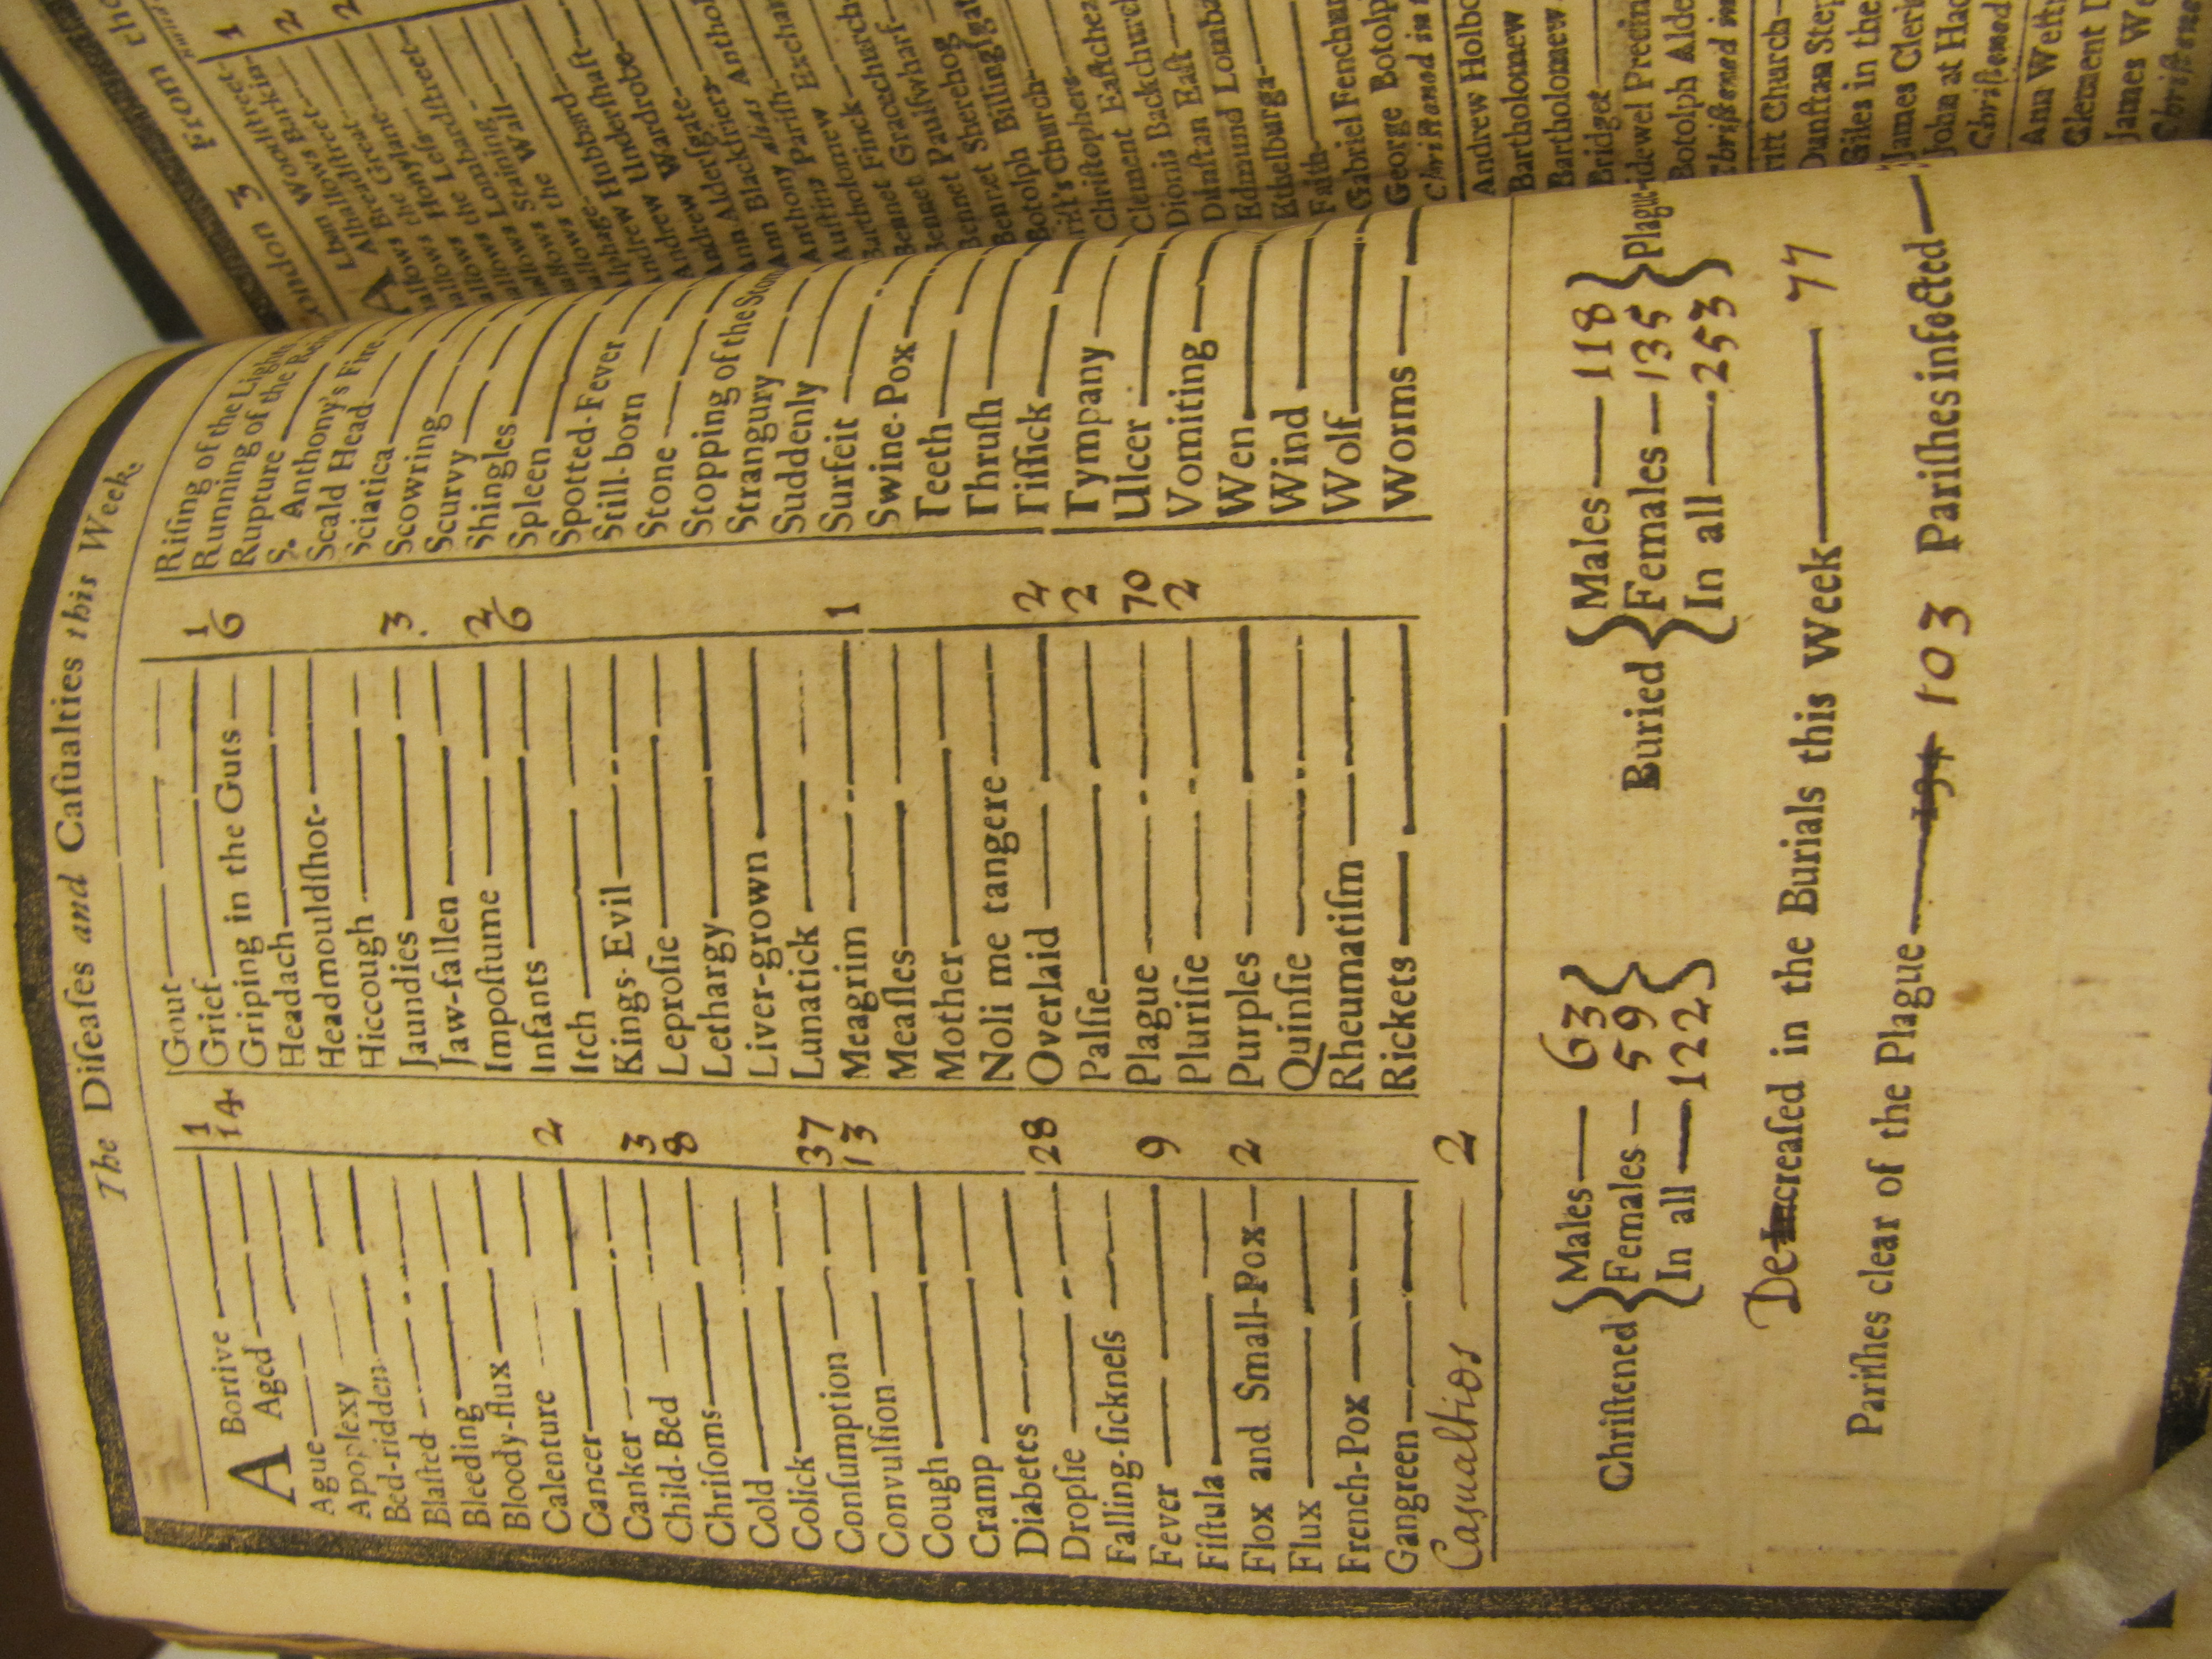 The Diſeaſes and Caſualties this Week.
A Bortive 1
Aged 14
Ague
Apoplexy
Bed-ridden
Blaſted
Bleeding
Bloody-flux
Calenture
Cancer 2
Canker
Child-Bed 3
Chriſoms 8
Cold
Colick
Conſumption 37
Convulſion 13
Cough
Cramp
Diabetes
Dropſie 28
Falling-ſickneſs
Fever 9
Fiſtula
Flox and Small-Pox 2
Flux
French-Pox
Gangreen
Casualties 2
Gout
Grief 1
Griping in the Guts 6
Headach
Headmouldſhot
Hiccough
Jaundies 3
Jaw-fallen
Impoſtume 2
Infants 6
Itch
Kings-Evil
Leproſie
Lethargy
Liver-grown
Lunatick
Meagrim 1
Meaſles
Mother
Noli me tangere
Overlaid 2
Palſie 2
Plague 70
Pluriſie 2
Purples
Quinſie
Rheumatiſm
Rickets
Riſing of the Lights
Running of the
Rupture
S. Anthony's Fire
Scald Head
Sciatica
Scowring
Scurvy
Shingles
Spleen
Spotted-Fever
Still-born
Stone
Stopping of the
Strangury
Suddenly
Surfeit
Swine-Pox
Teeth
Thruſh
Tiſſick
Tympany
Ulcer
Vomiting
Wen
Wind
Wolf
Worms
Chriſtened
Males 63
Females 59
In all 122
Buried
Males 118
Females 135
In all 253
Plague
Decreaſed in the Burials this Week 77
Pariſhes clear of the Plague 103 Pariſhes infected
London 3 From the
Alhallows Breadſtreet
Alhallows the Great
Alhallows Honylane
Alhallows the Leſs
Alhallows Lombardſtreet
Alhallows Staining
Alhallows the Wall
Andrew Hubbard
Andrew Underſhaft
Andrew Wardrobe
Ann Alderſgate
Ann Blackfriers
Bartholomew Exchange
Bennet Finck
Bennet Gracechurch
Bennet Paulſwharf
Bennet Sherehog
Botolph Billingſgate
Chriſt's Church
Chriſtophers
Clement Eaſtcheap
Dionis Backchurch
Dunſtan Eaſt
Edmund
Ethelburga
Faith
Gabriel Fenchurch
George Botolph
Chriſtned in
Andrew Holborn
Bartholomew
Bartholomew
Bridget
Botolph
Giles in the
James Clerk
John at Hac
Ann Weſtm
Clement D
James We